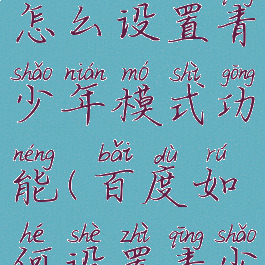 怎么设置青
shǎo nián mó shì gōng
少年模式功
néng bǎi dù rú
能(百度如
hé shè zhì qīng shǎo
何设置青少